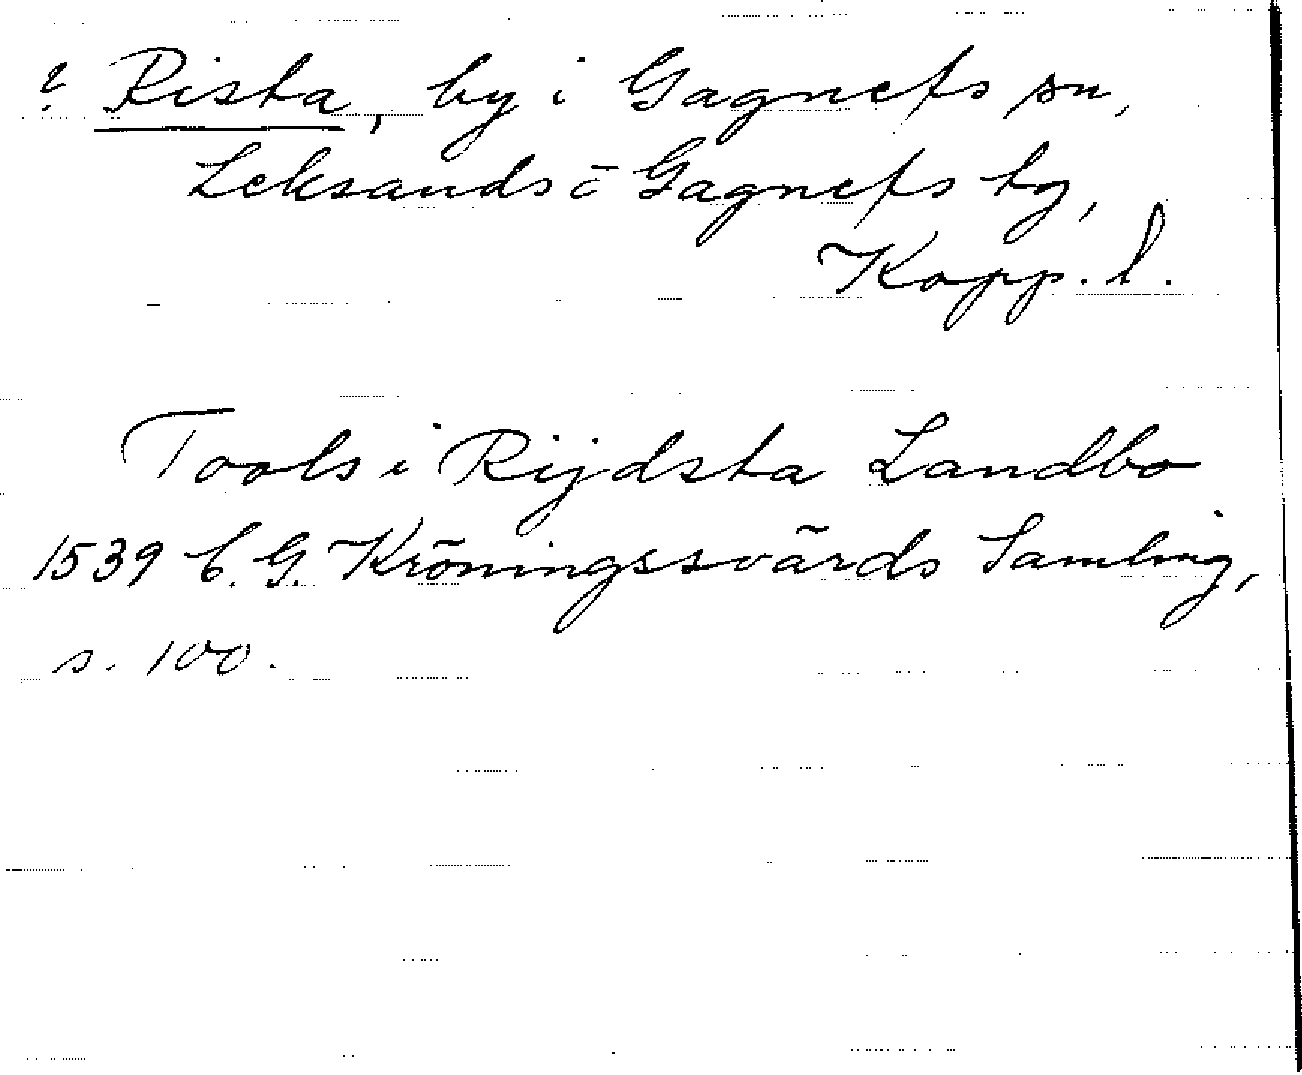 ? Rista, by i Gagnefs sn,
Leksands o Gagnefs tg,
Kopp. l.
Tools i Rijdsta Landbo
1539 C. G. Kröningssvärds Samling,
s. 100.